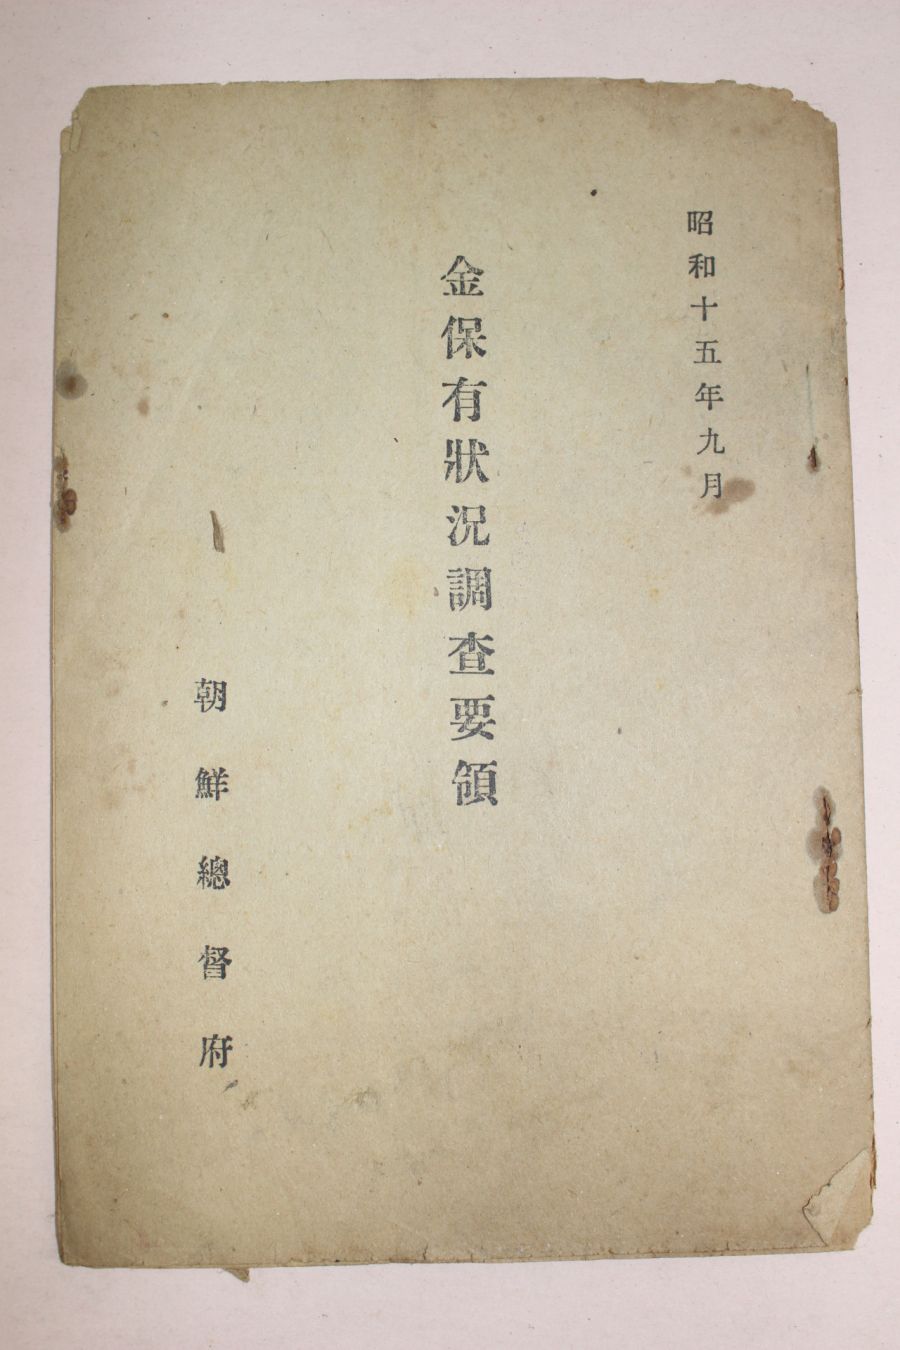 昭和十五年九月
金保有狀況調査要領
朝鮮總督府